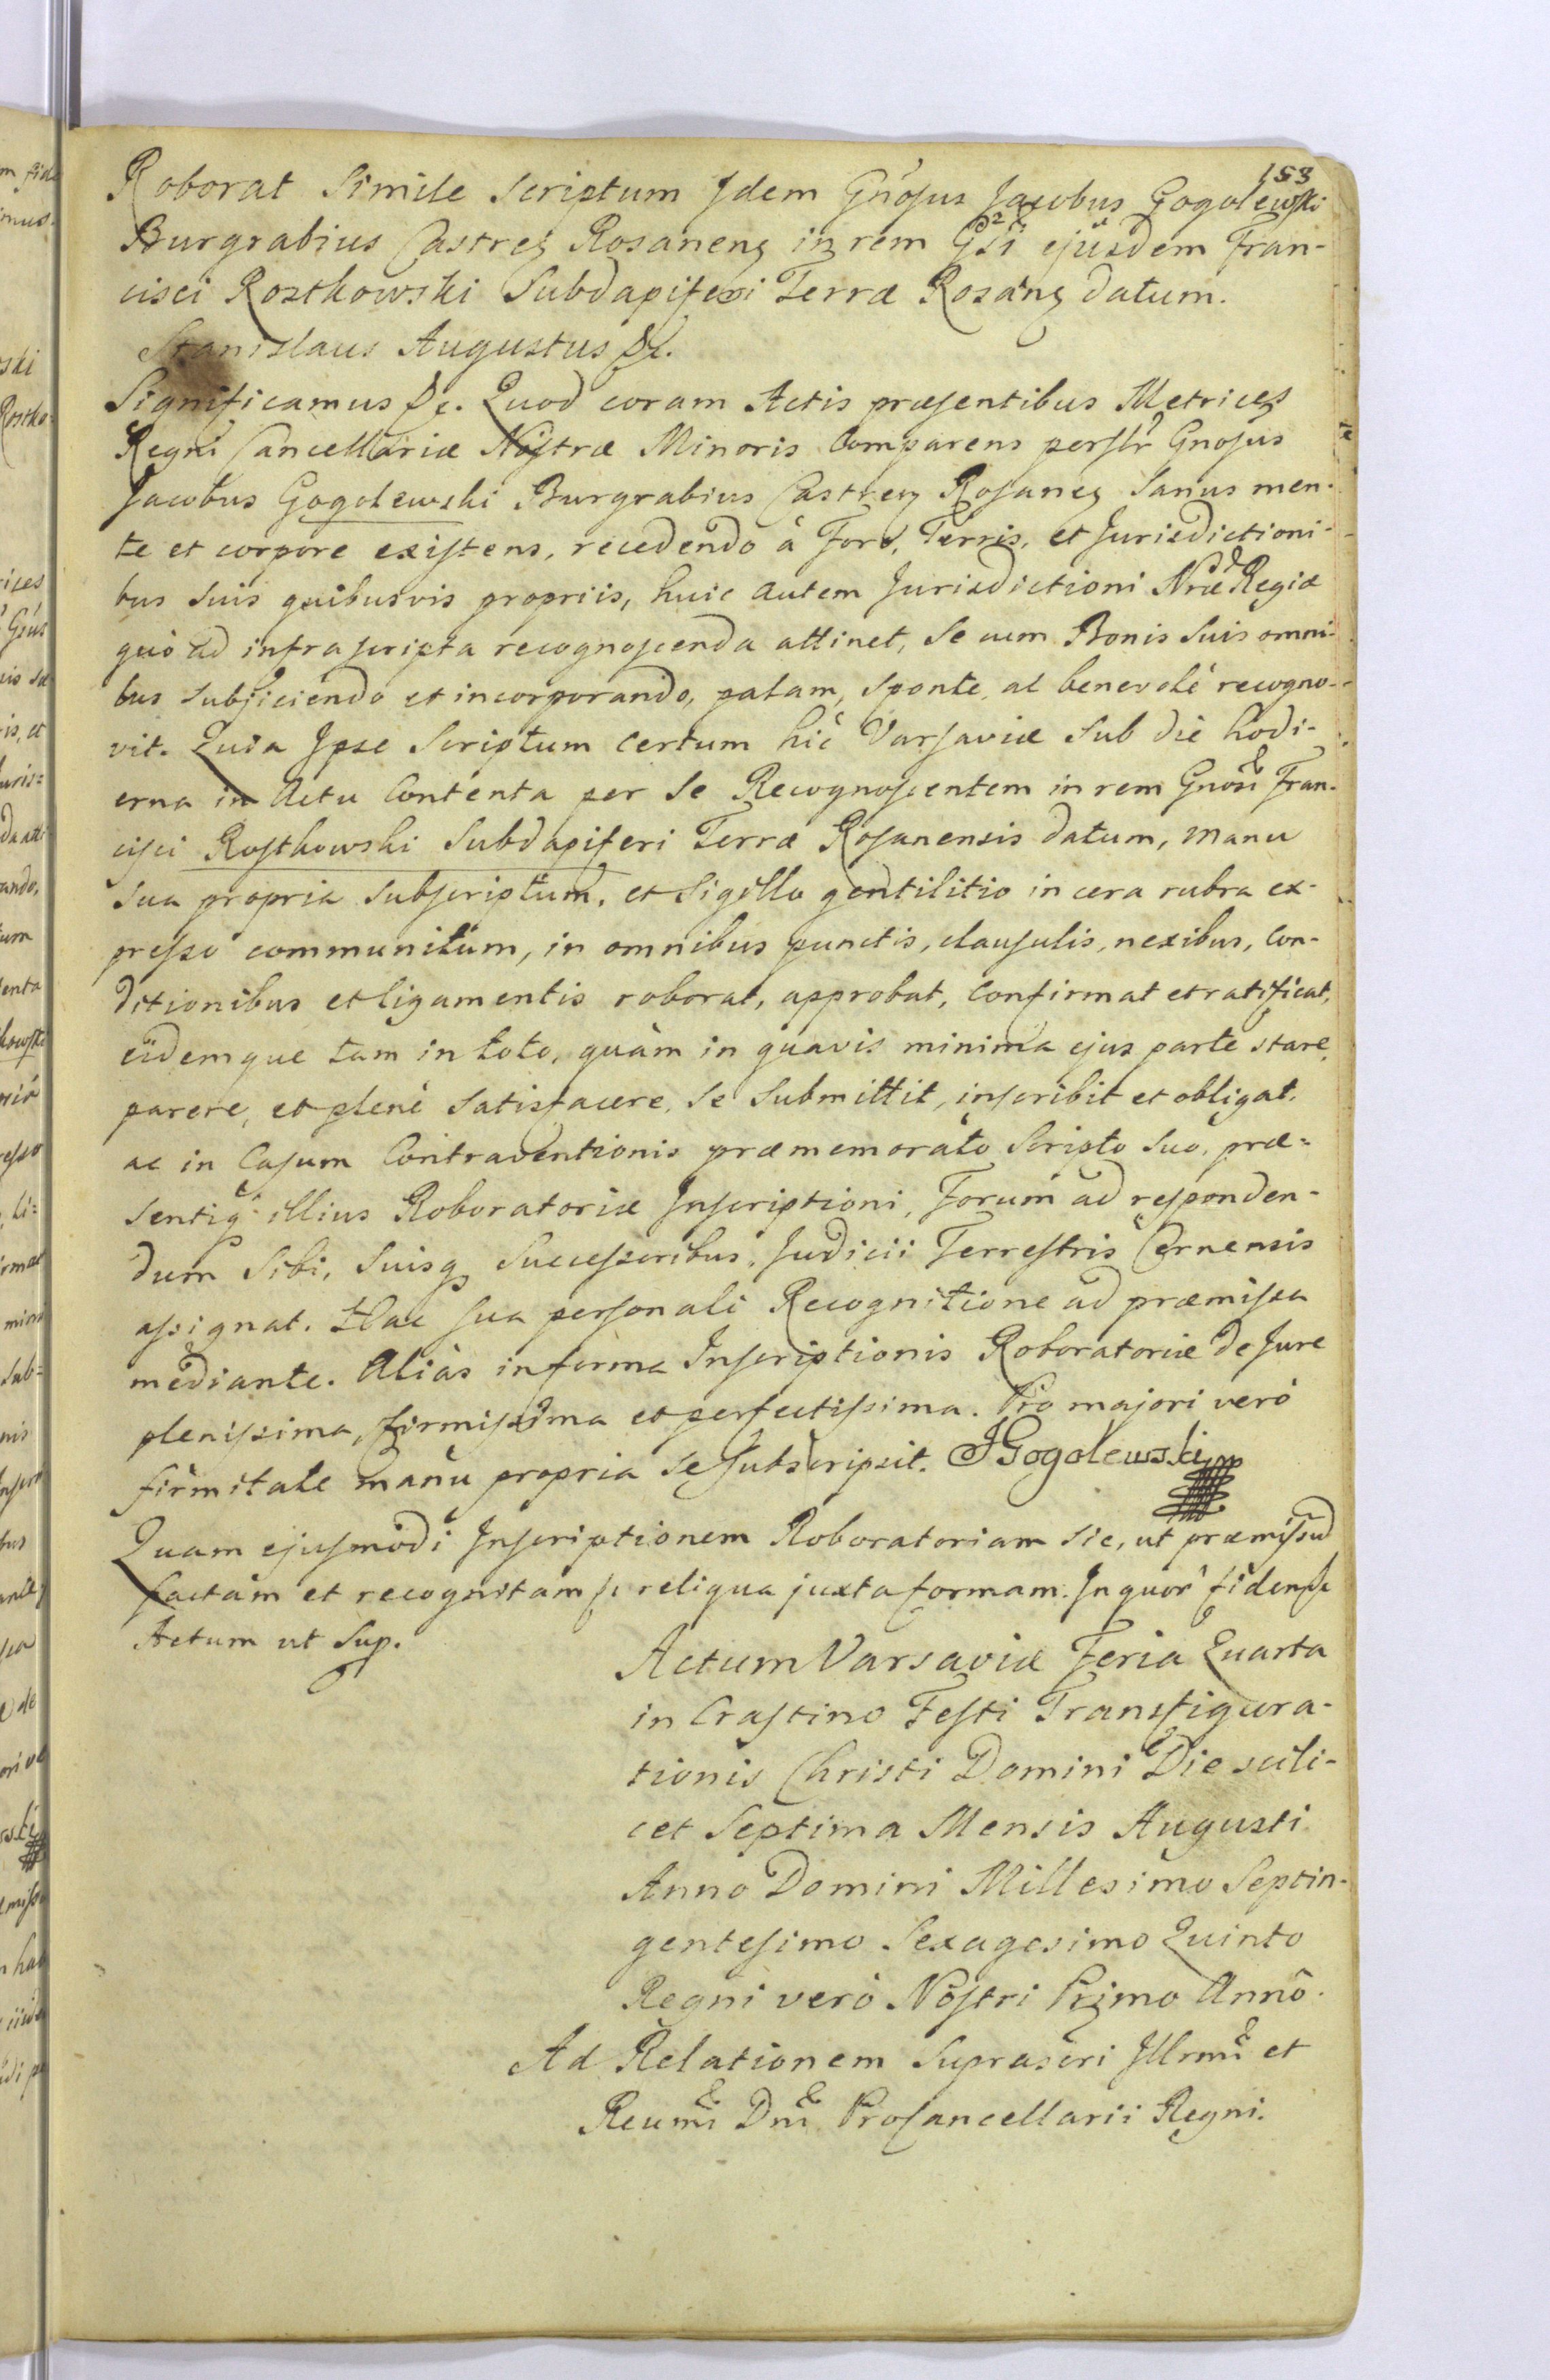 153
Roborat Simile Scriptum Idem Gnosus Jacobus Gogolewski
Burgrabius Castreӡ Rosaneng in rem Gsi ejusdem Fran-
cisci Rostkowski Subdapiferi Terræ Rosang datum.
Stanislaus Augustus &c.
Significamus &c. Quod coram Actis præsentibus Metrices
Regni Cancellariæ Nostræ Minoris Comparens persłr Gnosus
Jacobus Gogolewski Burgrabius Castreng Rosaneg Sanus men-
te et corpore existens, recedendo à Foro, Terris, et Jurisdictioni-
bus suis quibusvis propriis, huic autem Jurisdictioni Nræ Regiæ
quò ad infrascripta recognoscenda attinet, se cum Bonis suis omni-
bus subjiciendo et incorporando, palam, sponte, ac benevolè recogno-
vit. Quia Ipse Scriptum certum hìc Varsaviæ sub die hodi-
erna in Actu Contenta per se Recognoscentem in rem Gnosi Fran-
cisci Rostkowski Subdapiferi Terræ Rosanensis datum, manu
sua propria subscriptum, et Sigillo gentilitio in cera rubra ex-
presso communitum, in omnibus punctis, clausulis, nexibus, Con-
ditionibus et ligamentis roborat, approbat, confirmat et ratificat,
eidemque tam in toto, quàm in quavis minima ejus parte stare,
parere, et plenè satisfacere, se submittit, inscribit et obligat.
ac in Casum Contraventionis præmemorato Scripto suo, præ=
sentiq illius Roboratoriæ Inscriptioni, Forum ad responden-
dum Sibi, Suisq Successoribus, Judicii Terrestris Cernensis
assignat. Hac sua personali Recognitione ad præmissa
mediante. Aliàs in forma Inscriptionis Roboratoriæ de Jure
plenissima, firmissima et perfectissima. Pro majori verò
firmitate manu propria se subscripsit. JGogolewski mpp
Quam ejusmodi Inscriptionem Roboratoriam sic, ut præmissũ
factam et recognitam &c reliqua juxta formam. In quor fidem &c
Actum ut Sup.
Actum Varsaviæ Feria Quarta
in Crastino Festi Transfigura-
tionis Christi Domini Die scili-
cet Septima Mensis Augusti
Anno Domini Millesimo Septin-
gentesimo Sexagesimo Quinto
Regni verò Nostri Primo Anno.
Ad Relationem Suprascri Illrmi et
Reumi Dni Procancellarii Regni.